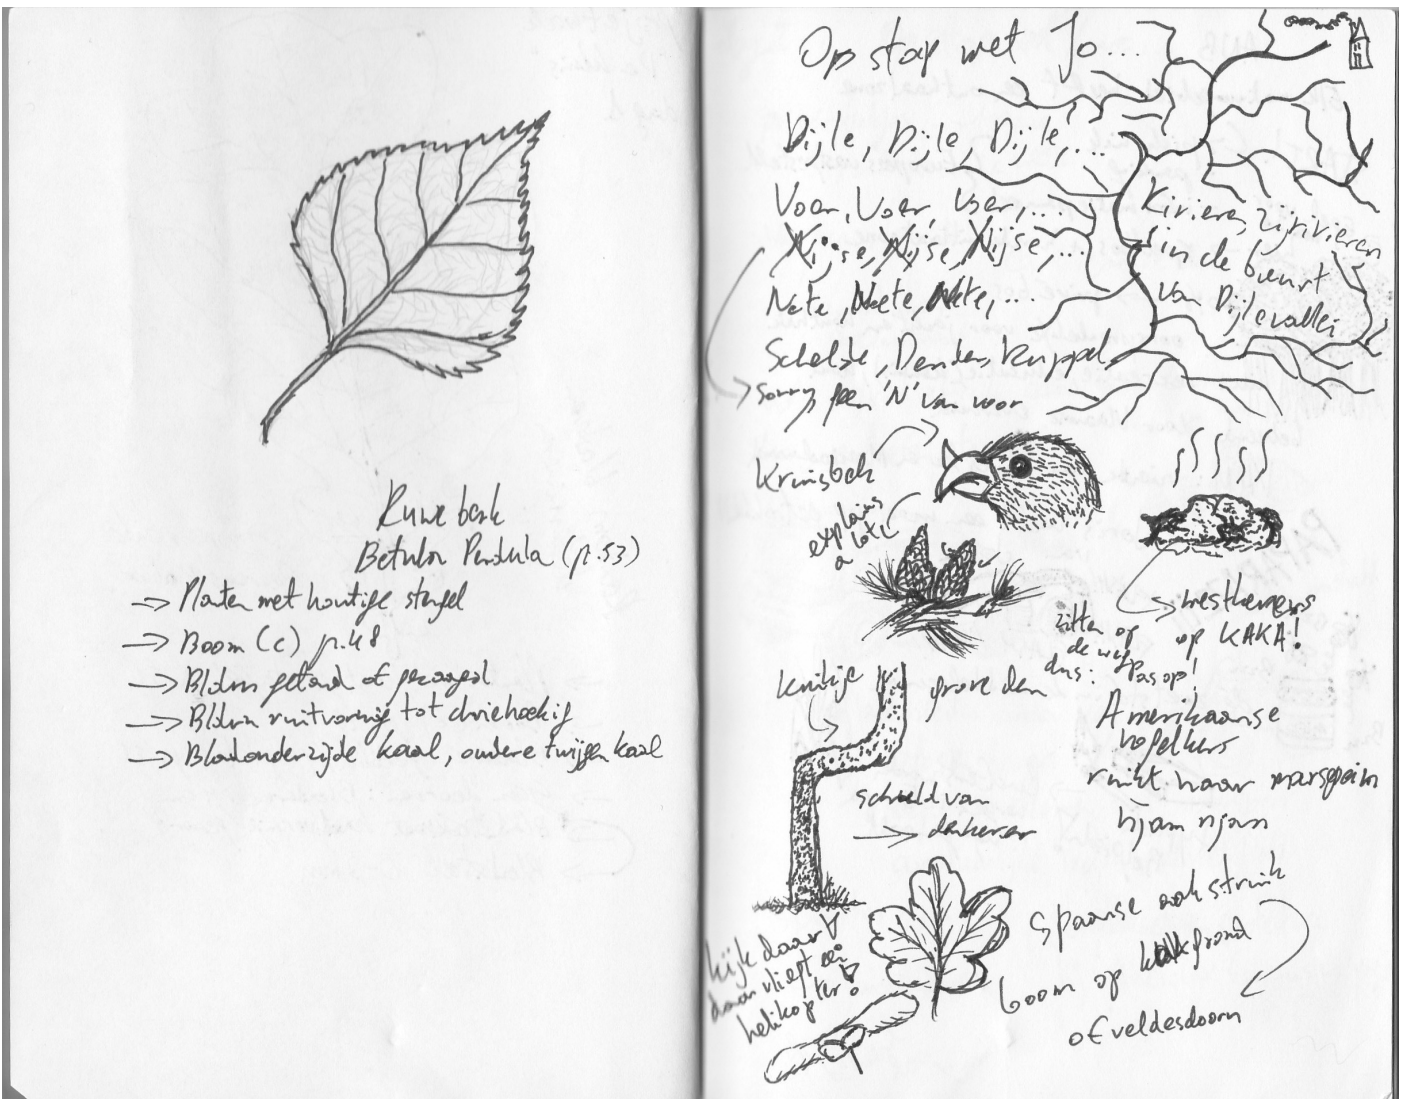 Ruwe berk
Betula Pendula (p.53)
→ Planten met houtige stengel
→ Boom (c) p.48
→ Bladeren getand of gezaagd
→ Bladeren ruitvormig tot driehoekig
→ Bladonderzijde kaal, oudere twijgen kaal
Op stap met Jo...
Dijle, Dijle Dijle,...
Voer, Voer, Voer,...
Nijse, Nijse, Nijse,...
Nete, Neete, Nete,...
Schelde, Dender, Kuppel
→ sorry geen 'N' van voor
Rivieren, zijrivieren
in de buurt
van Dijlevallei
Kruisbek
explains
a lot
mestkevers
op KAKA!
zitten op
de weg
dus: Pas op!
knikje
grove den
Amerikaanse
vogelkers
ruikt naar marsepein
njam njam
schuld van
→ denkever
Spaanse aak struik
boom op kalkgrond
of veldesdoorn
kijk daar!
daar vliegt een
helikopter!